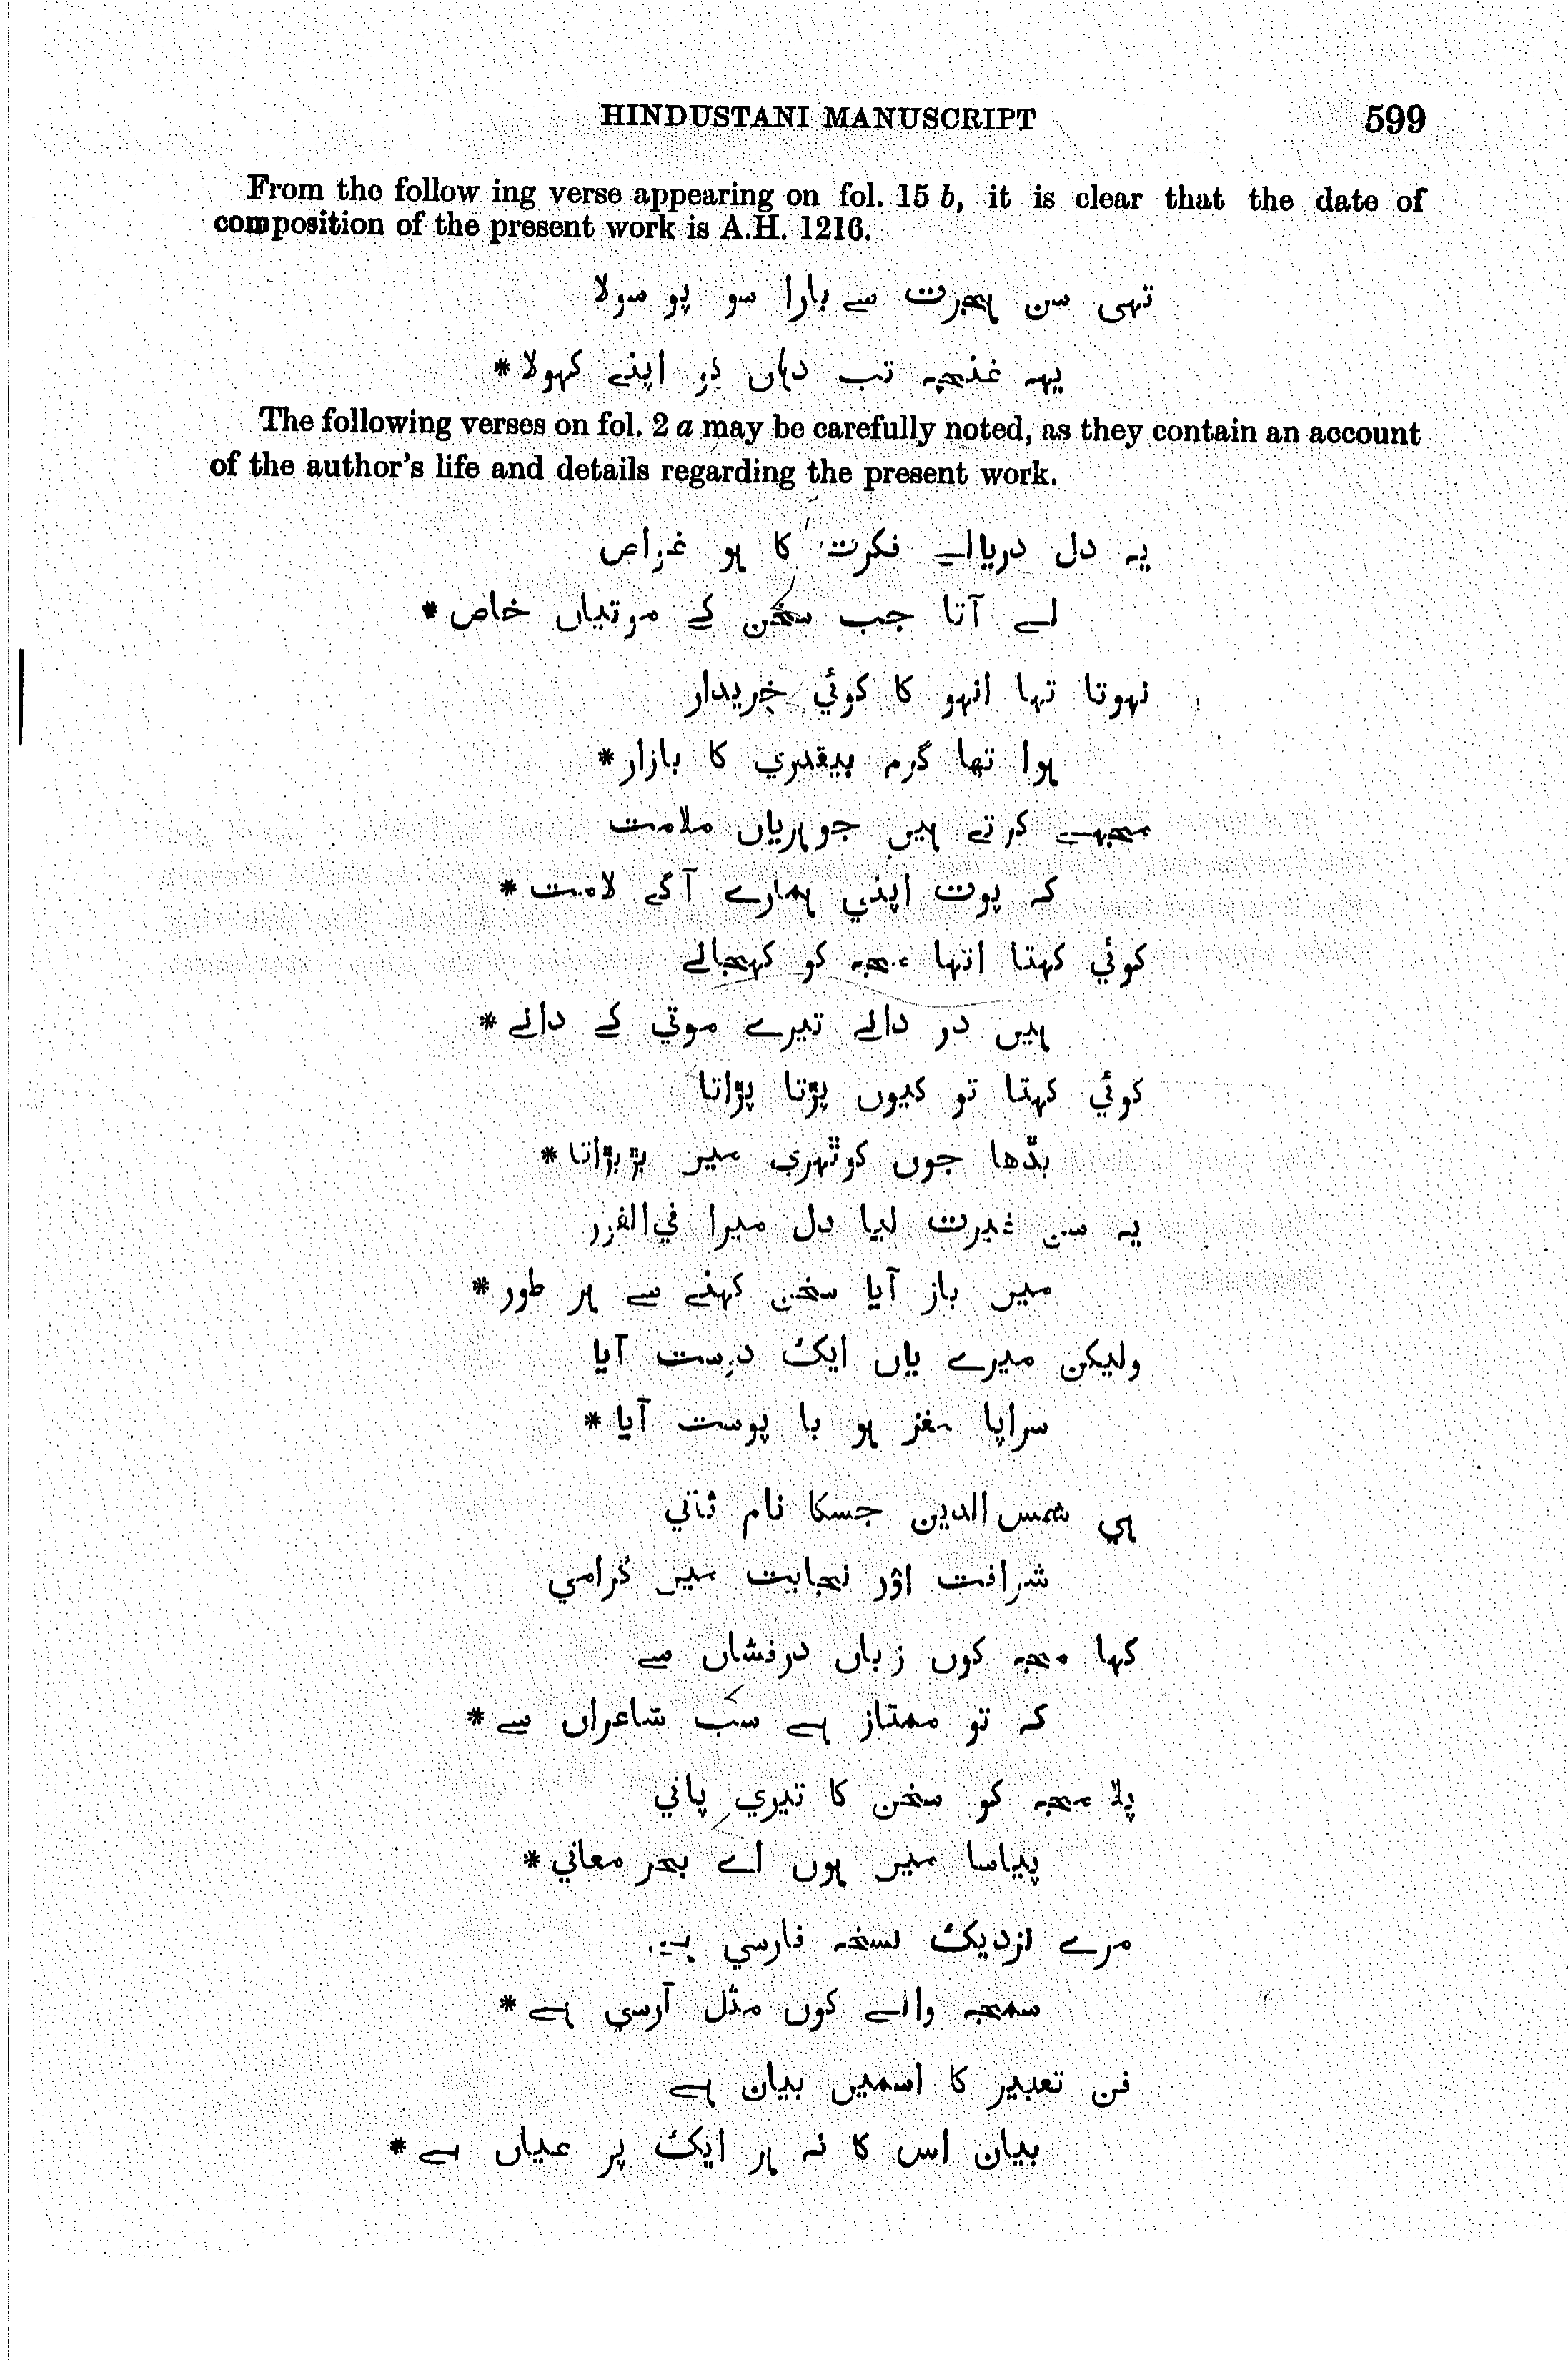 HINDUSTANI MANUSCRIPT 599
From the follow ing verse appearing on fol. 15 b, it is clear that the date of
composition of the present work is A.H. 1216.
تهي سن ہجرت سے بارا سو پو سولا
یہہ غنچہ تب دہاں کو اپنے کہولا *
The following verses on fol. 2 a may be carefully noted, as they contain an account
of the author's life and details regarding the present work.
یہ دل دریاے فکرت کا ہو غواص
لے آتا جب سخن کے موتیاں خاص *
نہوتا تہا انہو کا کوئي خریدار
ہوا تھا گرم بیقدري کا بازار *
مجہے کرتے ہیں جوہریاں ملامت
کہ پوت اپني ہمارے آگے لامت *
کوئي کہتا اتہا مجہ کو کہجالے
ہیں در دالے تیرے موتي کے دالے *
کوئي کہتا تو کیوں پڑتا پڑاتا
بڈھا جوں کوٹہري میں بڑبڑاتا *
یہ سن غیرت لیا دل میرا في الفور
میں باز آیا سخن کہنے سے ہر طور *
ولیکن میرے یاں ایک دوست آیا
سراپا مغز ہو با پوست آیا *
ہي شمس الدین جسکا نام ثاني
شرافت اور نجابت میں گرامي
کہا مجہ کوں زباں درفشاں سے
کہ تو ممتاز ہے سب شاعراں سے *
پلا مجہ کو سخن کا تیري پاني
پیاسا میں ہوں اے بحر معاني *
مرے نزدیک نسخہ فارسي ہے
سمجہ والے کوں مثل آرسي ہے *
فن تعبیر کا اسمیں بیان ہے
بیان اس کا نہ ہر ایک پر عیاں ہے *